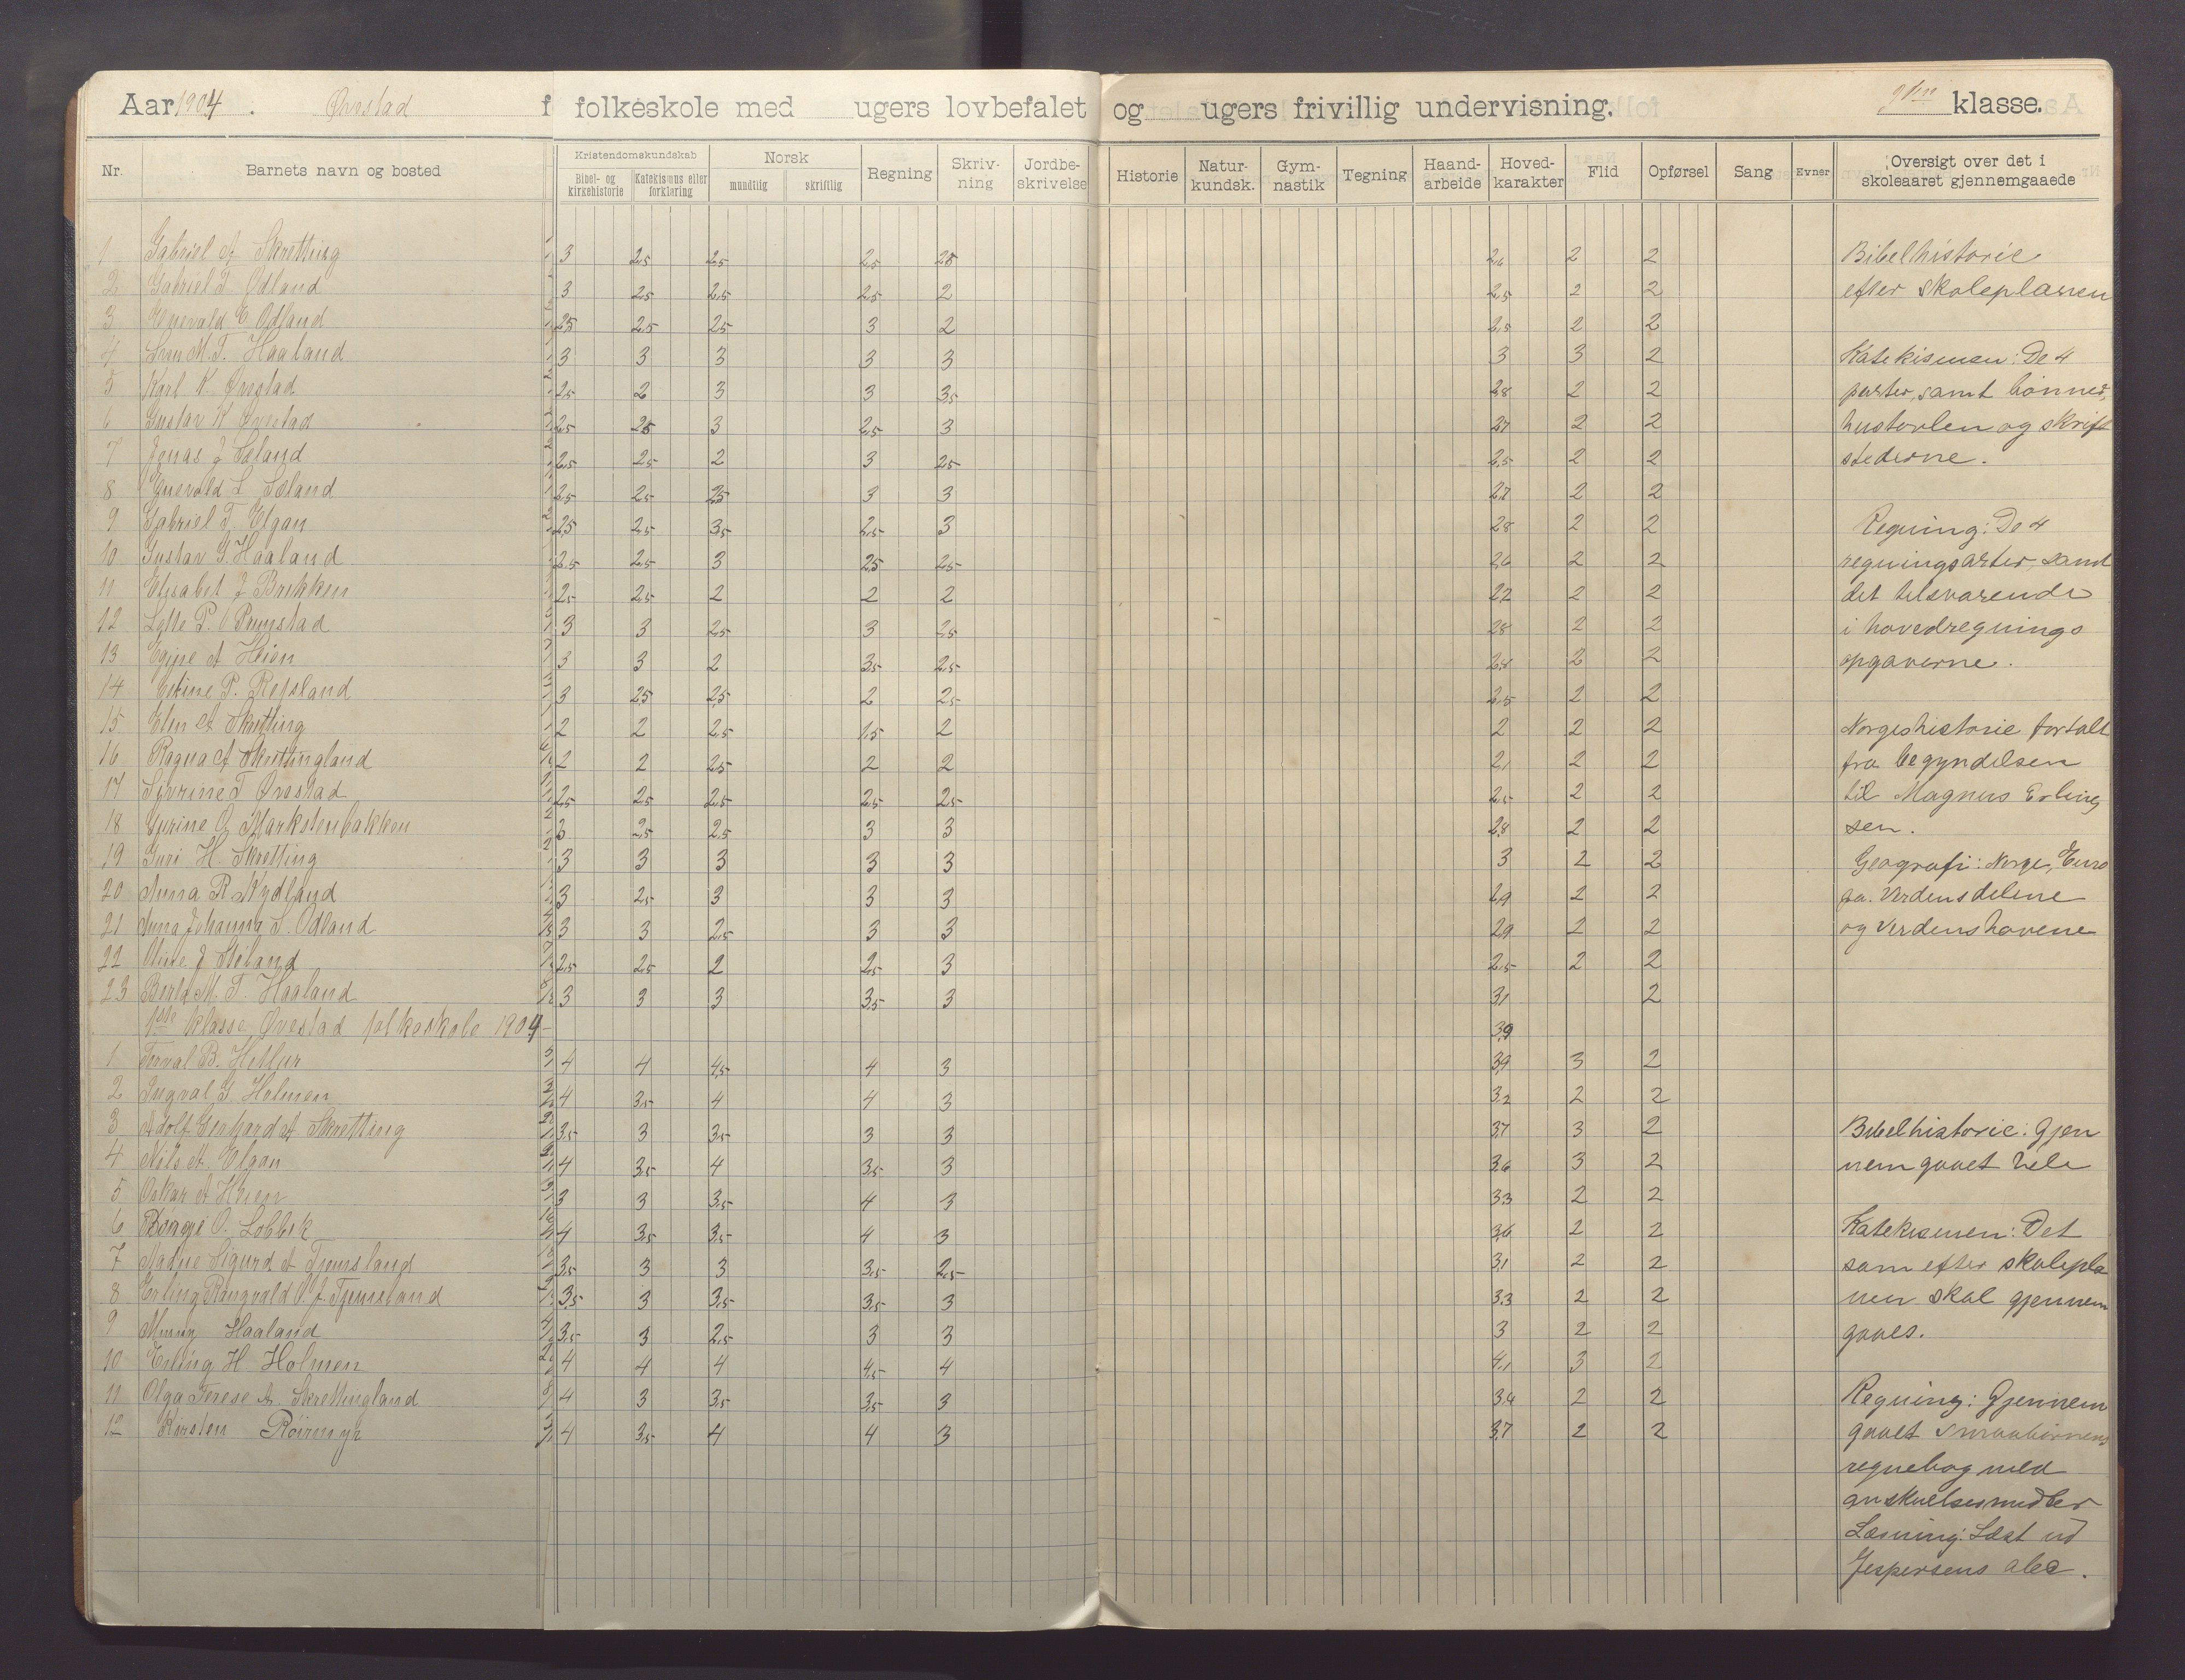 Aar 1904. Ørestad f folkeskole med ugers lovbefalet og ugers frivillig undervisning. klasse.
Nr. Barnets navn og bosted Kristendomskundskab Bibel- og kirkehistorie Katekismus eller forklaring Norsk mundtlig skriftlig Regning Skriv-ning Jordbe-skrivelse Historie Natur-kundsk. Gym-nastik Tegning Haand-arbeide Hoved-karakter Flid Opførsel Sang Evner Oversigt over det i skoleaaret gjennemgaaede
1 Gabriel A Skretting 3 2,5 2,5 2,5 2,5 2,6 2 2 Bibelhistorie
2 Gabriel T Odland 3 2,5 2,5 2,5 2 2,5 2 2 efter skoleplanen
3 Enevald E Odland 2,5 2,5 2,5 3 2 2,5 2 2
4 M. T. Haaland 3 3 3 3 3 3 3 2 Katekismen: De 4
5 Karl K Ørestad 2,5 2 3 3 3,5 2,8 2 2 parter, samt bønner,
6 Gustav K Ørestad 2,5 2,5 3 2,5 3 2,7 2 2 hustavlen og skrift
7 Jonas J Søland 2,5 2,5 2 3 2,5 2,5 2 2 stederne.
8 Enevald L Søland 2,5 2,5 2,5 3 3 2,7 2 2
9 Gabriel T. Elgan 2,5 2,5 3,5 2,5 3 2,8 2 2 Regning: De 4
10 Gustav G. Haaland 2,5 2,5 3 2,5 2,5 2,6 2 2 regningsarter, samt
11 Elisabet J Brekken 2,5 2,5 2 2 2 2,2 2 2 det tilsvarende
12 P. 3 3 2,5 3 2,5 2,8 2 2 i hovedregnings
13 A 3 3 2 3,5 2,5 2,8 2 2 opgaverne.
14 P. Refsland 3 2,5 2,5 2 2,5 2,5 2 2
15 Elen A Skretting 2 2 2,5 1,5 2 2 2 2 Norgeshistorie fortalt
16 Ragna A Skrettingland 2 2 2,5 2 2 2,1 2 2 fra begyndelsen
17 Severine T Ørestad 2,5 2,5 2,5 2,5 2,5 2,5 2 2 til Magnus Erling
18 Gurine O Markstenbakken 3 2,5 2,5 3 3 2,8 2 2 sen.
19 Guri H. Skretting 3 3 3 3 3 3 2 2 Geografi: Norge, Euro
20 Anna R Nydland 3 2,5 3 3 3 2,9 2 2 pa. Verdensdelene
21 Anna Johanna S. Odland 3 3 2,5 3 3 2,9 2 2 og Verdenshavene
22 Oline J 2,5 2,5 2 2,5 3 2,5 2 2
23 Berta M. T. Haaland 3 3 3 3,5 3 3,1 2
1ste klasse Ørestad folkeskole 1904 3,9
1 Torval B. 4 4 4,5 4 3 3,9 3 2
2 Ingval G. Holmen 4 3,5 4 4 3 3,2 2 2
3 Adolf Gerhard A Skretting 3,5 3 3,5 3 3 3,7 3 2 Bibelhistorie: Gjen
4 Nils A. Elgan 4 3,5 4 3,5 3 3,6 3 2 nemgaaet hele
5 Oskar A 3 3 3,5 4 3 3,3 2 2
6 O. 4 3,5 3,5 4 3 3,6 2 2 Katekismen: Det
7 Sigurd A Tjemsland 3,5 3 3 3,5 2,5 3,1 2 2 som efter skolepla
8 Erling Rangvald O. J. Tjemsland 3,5 3 3,5 3,5 3 3,3 2 2 nen skal gjennem
9 Haaland 3,5 3 2,5 3 3 3 2 2 gaaes.
10 Erling H Holmen 4 4 4 4,5 4 4,1 3 2
11 Olga Terese A. Skrettingland 4 3 3,5 3,5 3 3,4 2 2 Regning: Gjennem
12 Kirsten Röirmyr 4 3,5 4 4 3 3,7 2 2 gaaet smaabørnenes
regnebog med
anskuelsesmidler
Læsning: Læst ud
Jespersens abc.